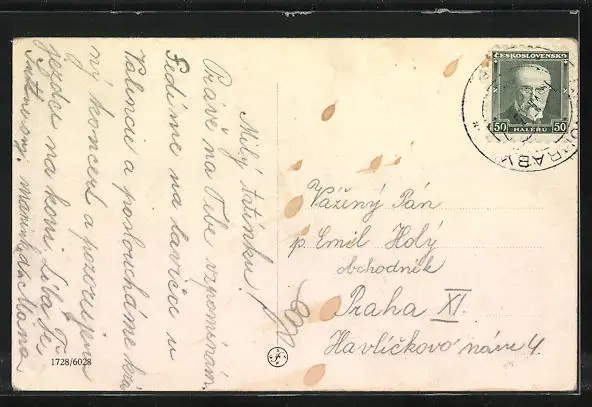 Milý tatínku!
Právě na Tebe vzpomínám.
Sedíme na lavičce u
a posloucháme krá
ný koncert a pozorujeme
jezdce na koni. Líbá Tě
Máňa
1728/6028
ČESKOSLOVENSKO
50 HALÉŘŮ 50
Vážený Pán
p. Emil Holý
obchodník
Praha XI.
Havlíčkovo nám 4.